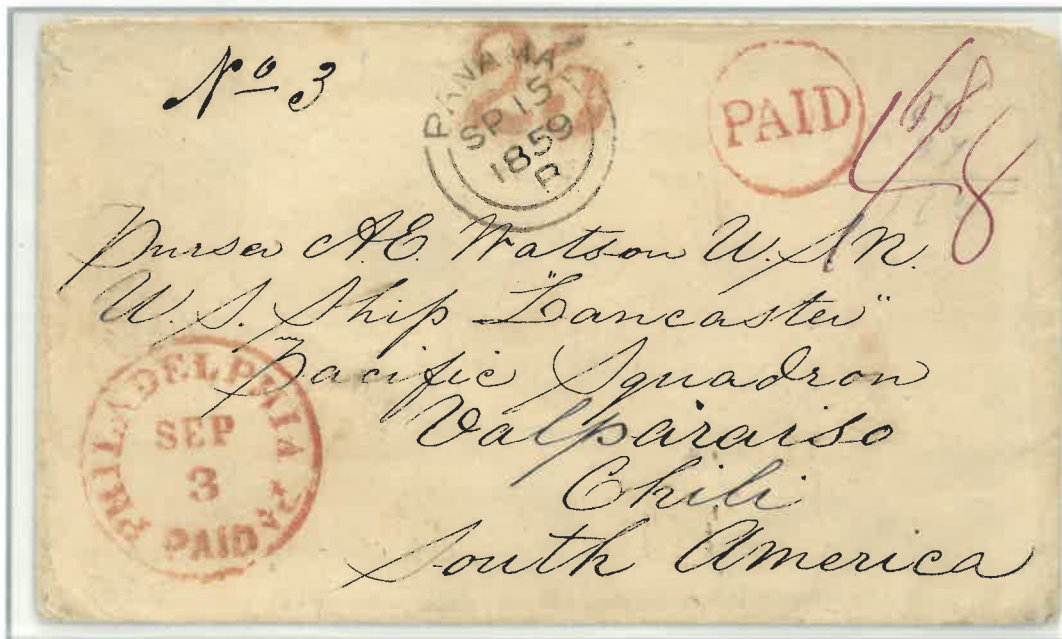 No 3
25
PANAMA
SP 15
1859
PAID
48
Purser A.E. Watson U.S.N.
U.S. Ship "Lancaster"
Pacific Squadron
Valparaiso
Chili
South America
PHILADELPHIA Pa.
SEP
3
PAID